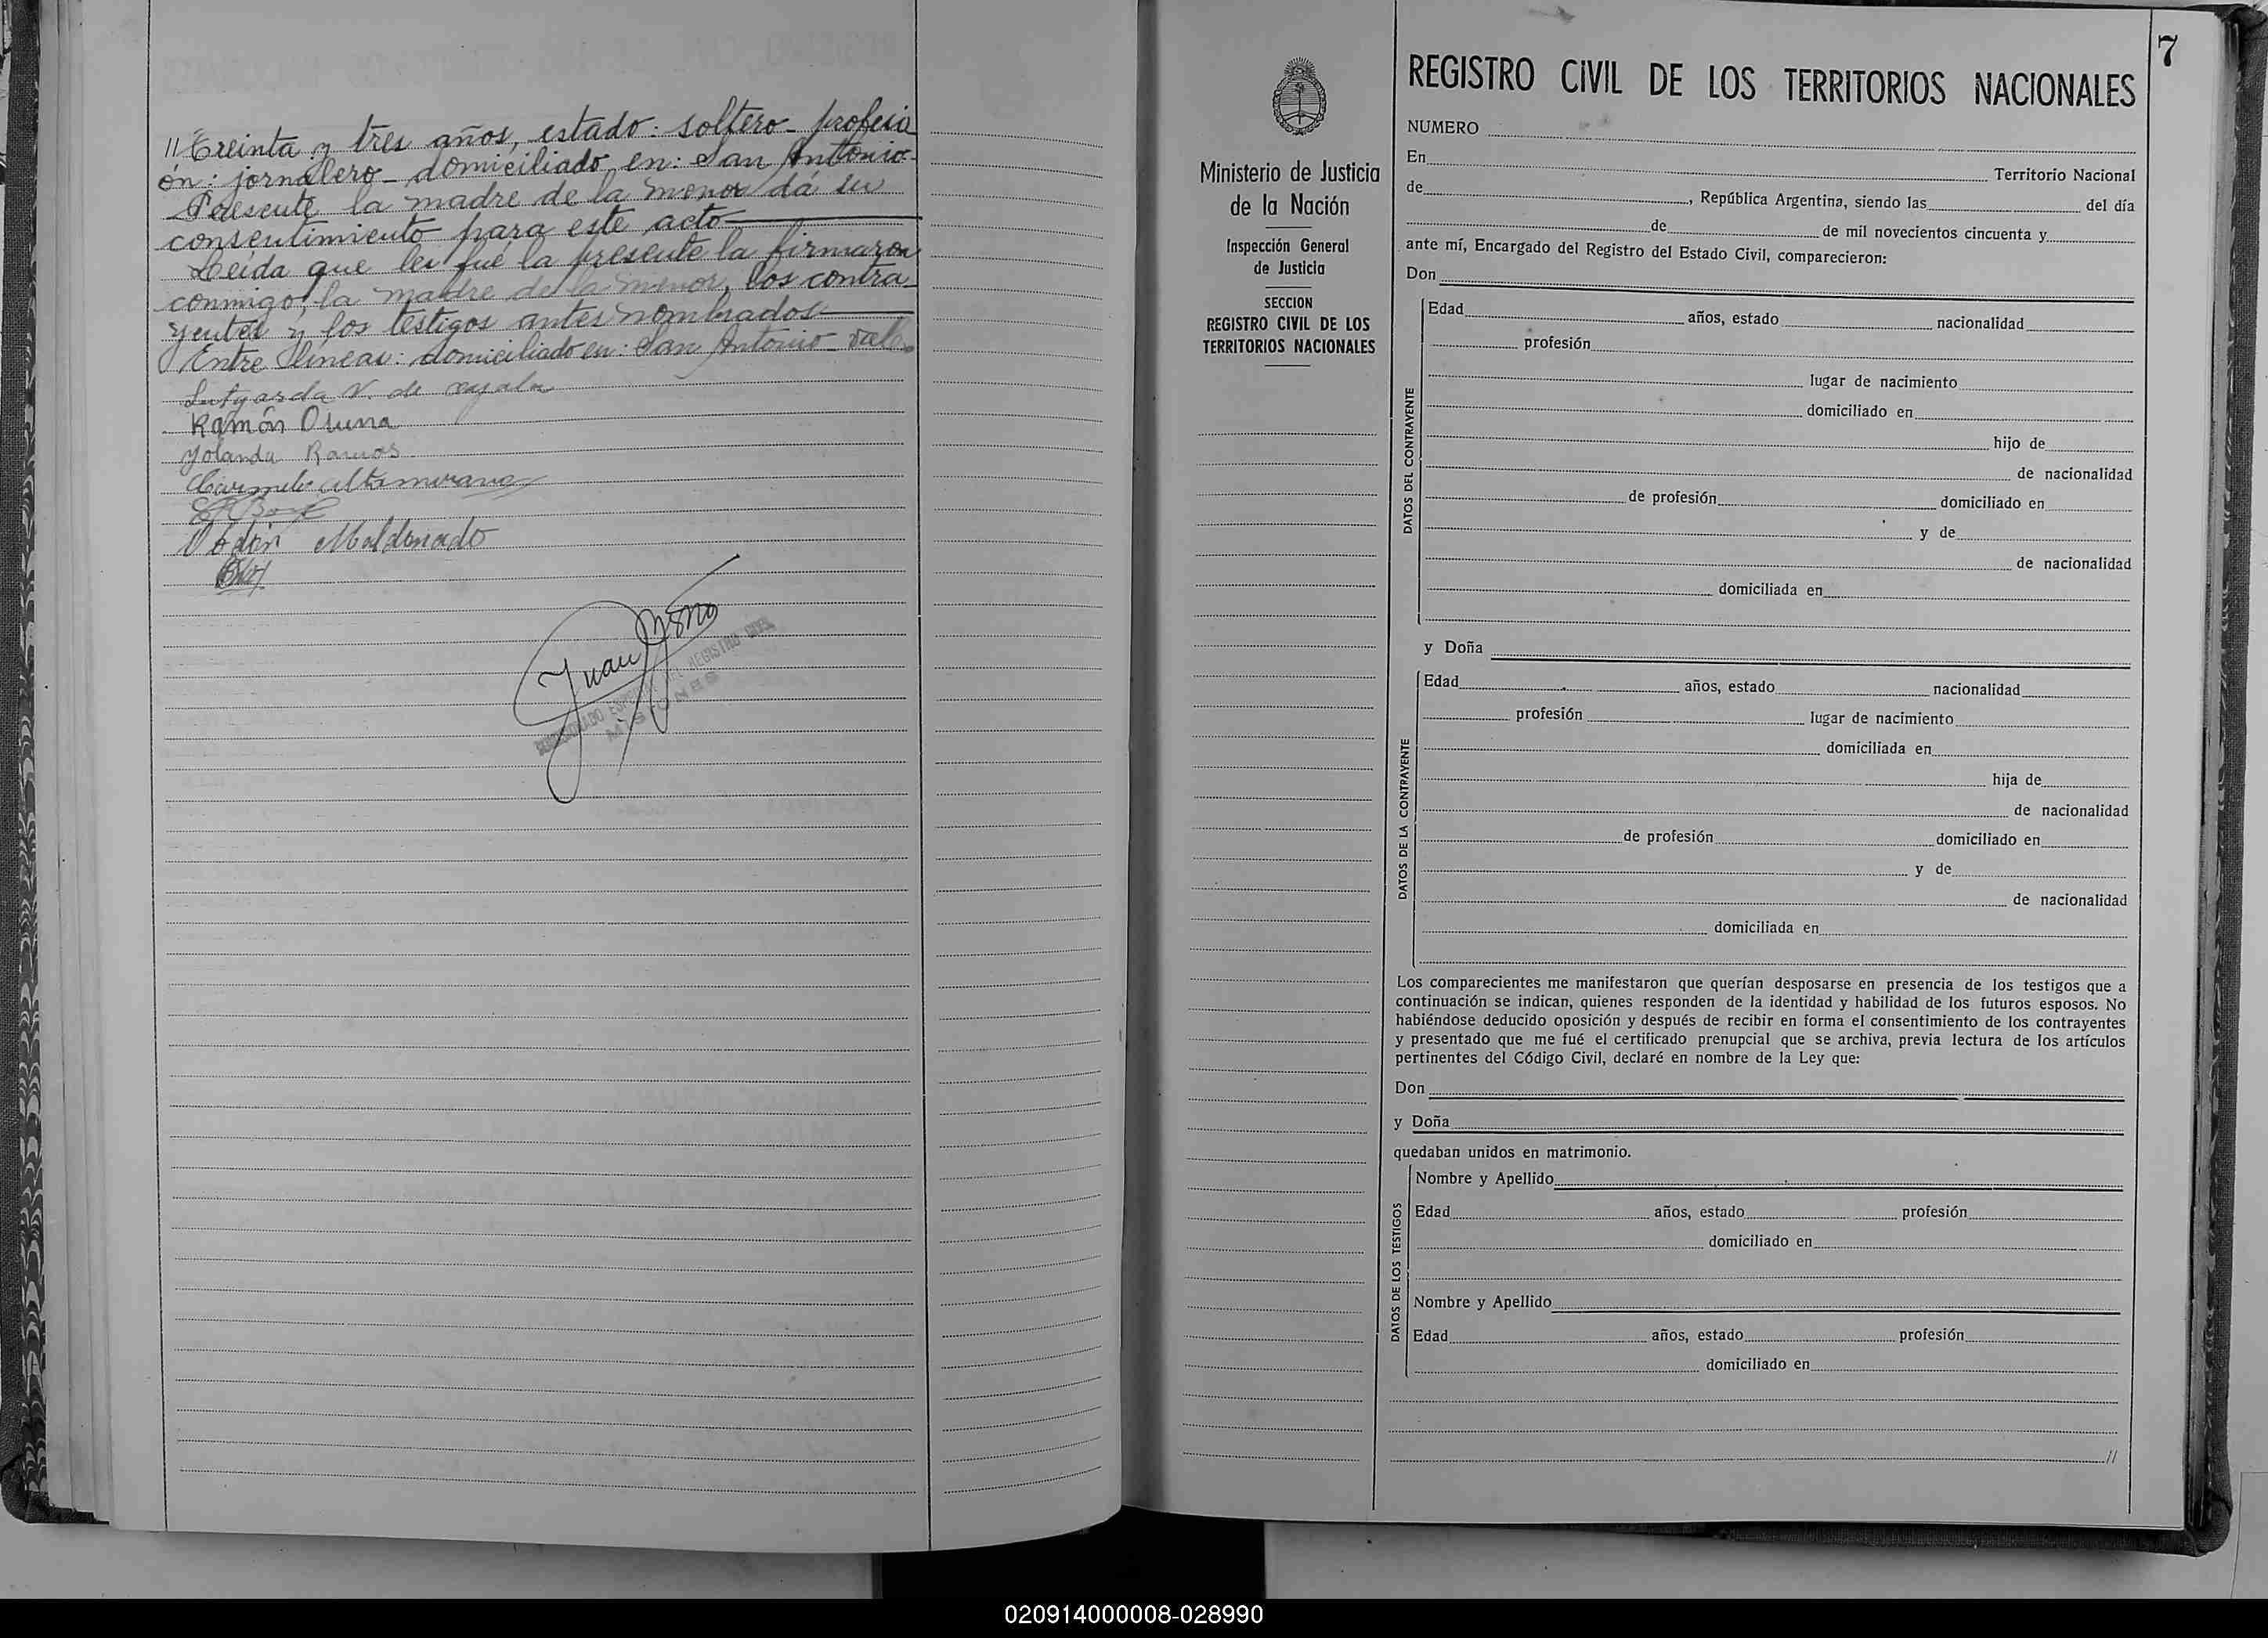 // Treinta y tres años, estado: soltero - profesi
ón: jornalero - domiciliado en: San Antonio -
Presente la madre de la menor dá su
consentimiento para este acto
Leída que les fué la presente la firmaron
conmigo, la madre de la menor, los contra
yentes y los testigos antes nombrados
Entre líneas: domiciliado en: San Antonio - Vale.
Lutgarda V. de Ayala
Ramón Osuna
Yolanda Ramos
Carmelo Altamirano
Maldonado
Juan
REGISTRO CIVIL
MISIONES
7
Ministerio de Justicia
de la Nación
Inspección General
de Justicia
SECCION
REGISTRO CIVIL DE LOS
TERRITORIOS NACIONALES
REGISTRO CIVIL DE LOS TERRITORIOS NACIONALES
NUMERO
En Territorio Nacional
de , República Argentina, siendo las del día
de de mil novecientos cincuenta y
ante mí, Encargado del Registro del Estado Civil, comparecieron:
Don
DATOS DEL CONTRAYENTE
Edad años, estado nacionalidad
profesión
lugar de nacimiento
domiciliado en
hijo de
de nacionalidad
de profesión domiciliado en
y de
de nacionalidad
domiciliada en
y Doña
DATOS DE LA CONTRAYENTE
Edad años, estado nacionalidad
profesión lugar de nacimiento
domiciliada en
hija de
de nacionalidad
de profesión domiciliado en
y de
de nacionalidad
domiciliada en
Los comparecientes me manifestaron que querían desposarse en presencia de los testigos que a
continuación se indican, quienes responden de la identidad y habilidad de los futuros esposos. No
habiéndose deducido oposición y después de recibir en forma el consentimiento de los contrayentes
y presentado que me fué el certificado prenupcial que se archiva, previa lectura de los artículos
pertinentes del Código Civil, declaré en nombre de la Ley que:
Don
y Doña
quedaban unidos en matrimonio.
DATOS DE LOS TESTIGOS
Nombre y Apellido
Edad años, estado profesión
domiciliado en
Nombre y Apellido
Edad años, estado profesión
domiciliado en
//
020914000008-028990